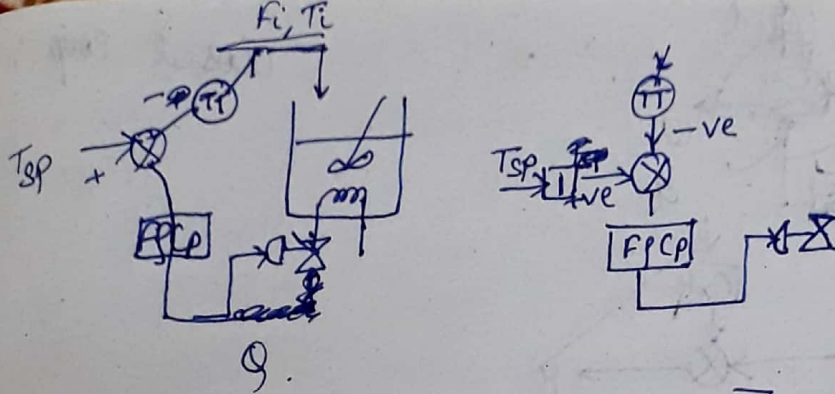 Fi, Ti
TT
-
Tsp
+
FρCp
Q.
TT
-ve
Tsp
1
+ve
FρCp